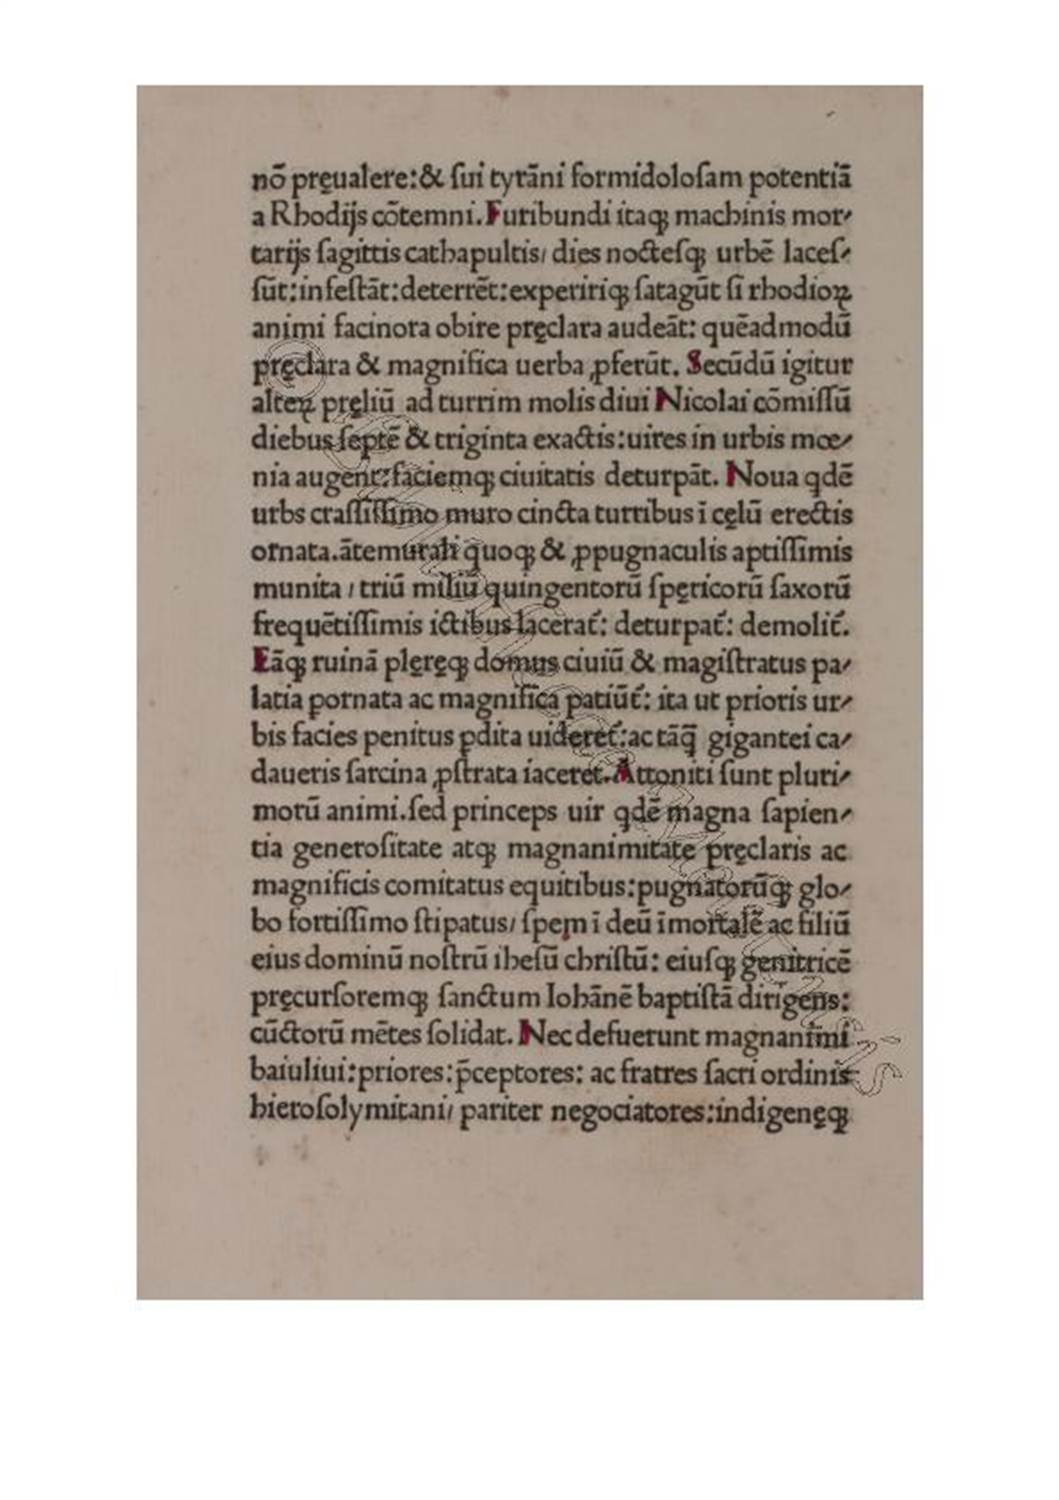 nō pręualere:& ſui tyrāni formidoloſam potentiā
a Rhodijs cōtemni. Furibundi itaqꝫ machinis mor⸗
tarijs ſagittis cathapultis/ dies noctefqꝫ urbē laceſ⸗
ſūt:infeſtāt:deterrēt:expeririqꝫ ſatagūt ſi rhodioꝝ
animi facinora obire pręclara audeāt: quēadmodū
pręclara & magnifica uerba ꝓferūt. Secūdū igitur
alteꝝ pręliū ad turrim molis diui Nicolai cōmiſſū
diebus ſeptē & triginta exactis:uires in urbis mœ⸗
nia augent:faciemqꝫ ciuitatis deturpāt. Noua qdē
urbs craſſiſſimo muro cincta turribus ī cęlū erectis
ornata.ātemurali quoqꝫ & ꝓpugnaculis aptiſſimis
munita / triū miliū quingentorū ſpęricorū ſaxorū
frequētiſſimis ictibus lacerat̄: deturpat̄: demolit̄.
Eāqꝫ ruinā plęręqꝫ domus ciuiū & magiſtratus pa⸗
latia ꝑornata ac magnifica patiūt̄: ita ut prioris ur⸗
bis facies penitus ꝑdita uideret̄:ac tāq̄ gigantei ca⸗
daueris ſarcina ꝓſtrata iaceret. Attoniti ſunt pluri⸗
morū animi.ſed princeps uir qdē magna ſapien⸗
tia generoſitate atqꝫ magnanimitate pręclaris ac
magnificis comitatus equitibus:pugnatorūqꝫ glo⸗
bo fortiſſimo ſtipatus/ ſpem ī deū īmortalē ac filiū
eius dominū noſtrū iheſū chriſtū: eiuſqꝫ genitricē
pręcurſoremqꝫ ſanctum Iohānē baptiſtā dirigens:
cūctorū mētes ſolidat. Nec defuerunt magnanīmi
baiuliui:priores:p̄ceptores: ac fratres ſacri ordinis
hieroſolymitani/ pariter negociatores:indigenęqꝫ